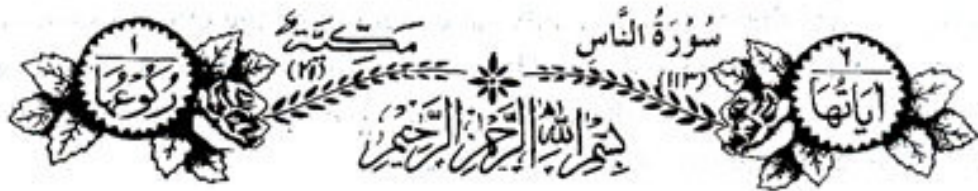 ٦
اٰيَاتُهَا
سُوْرَةُ النَّاسِ
مَكِّيَّةٌ
(٢١)
١
رُكُوْعُهَا
بِسْمِ اللّٰهِ الرَّحْمٰنِ الرَّحِيْمِ